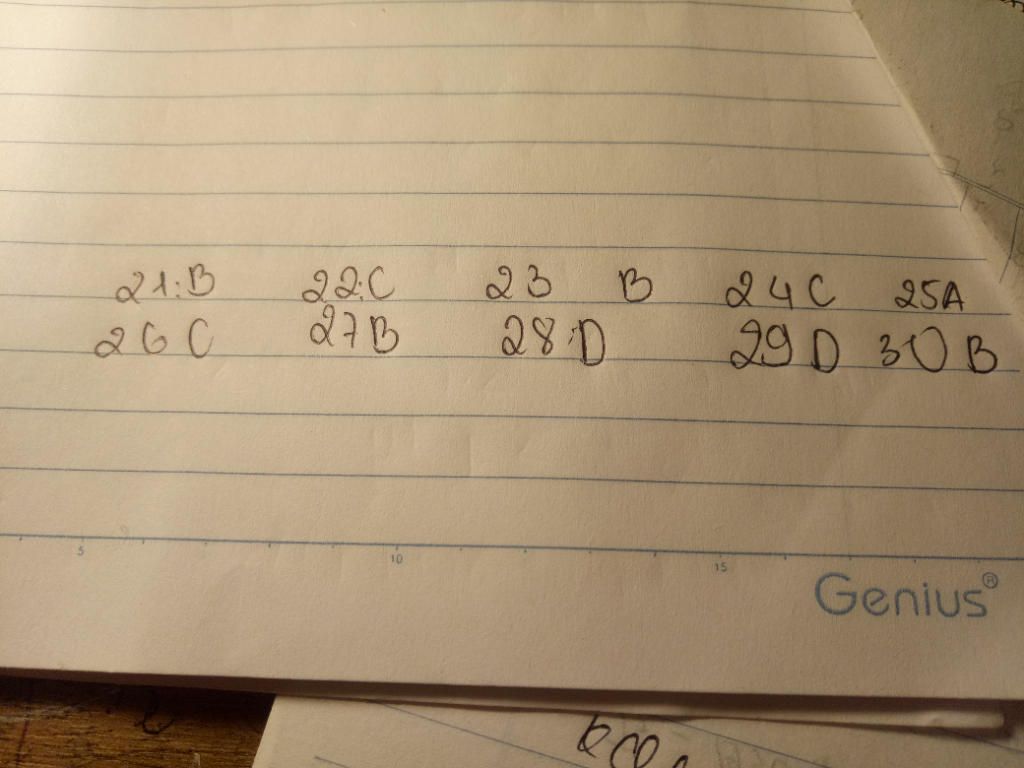 21:B 22:C 23 B 24 C 25A
26 C 27B 28:D 29 D 30 B
5 10 15
Genius®